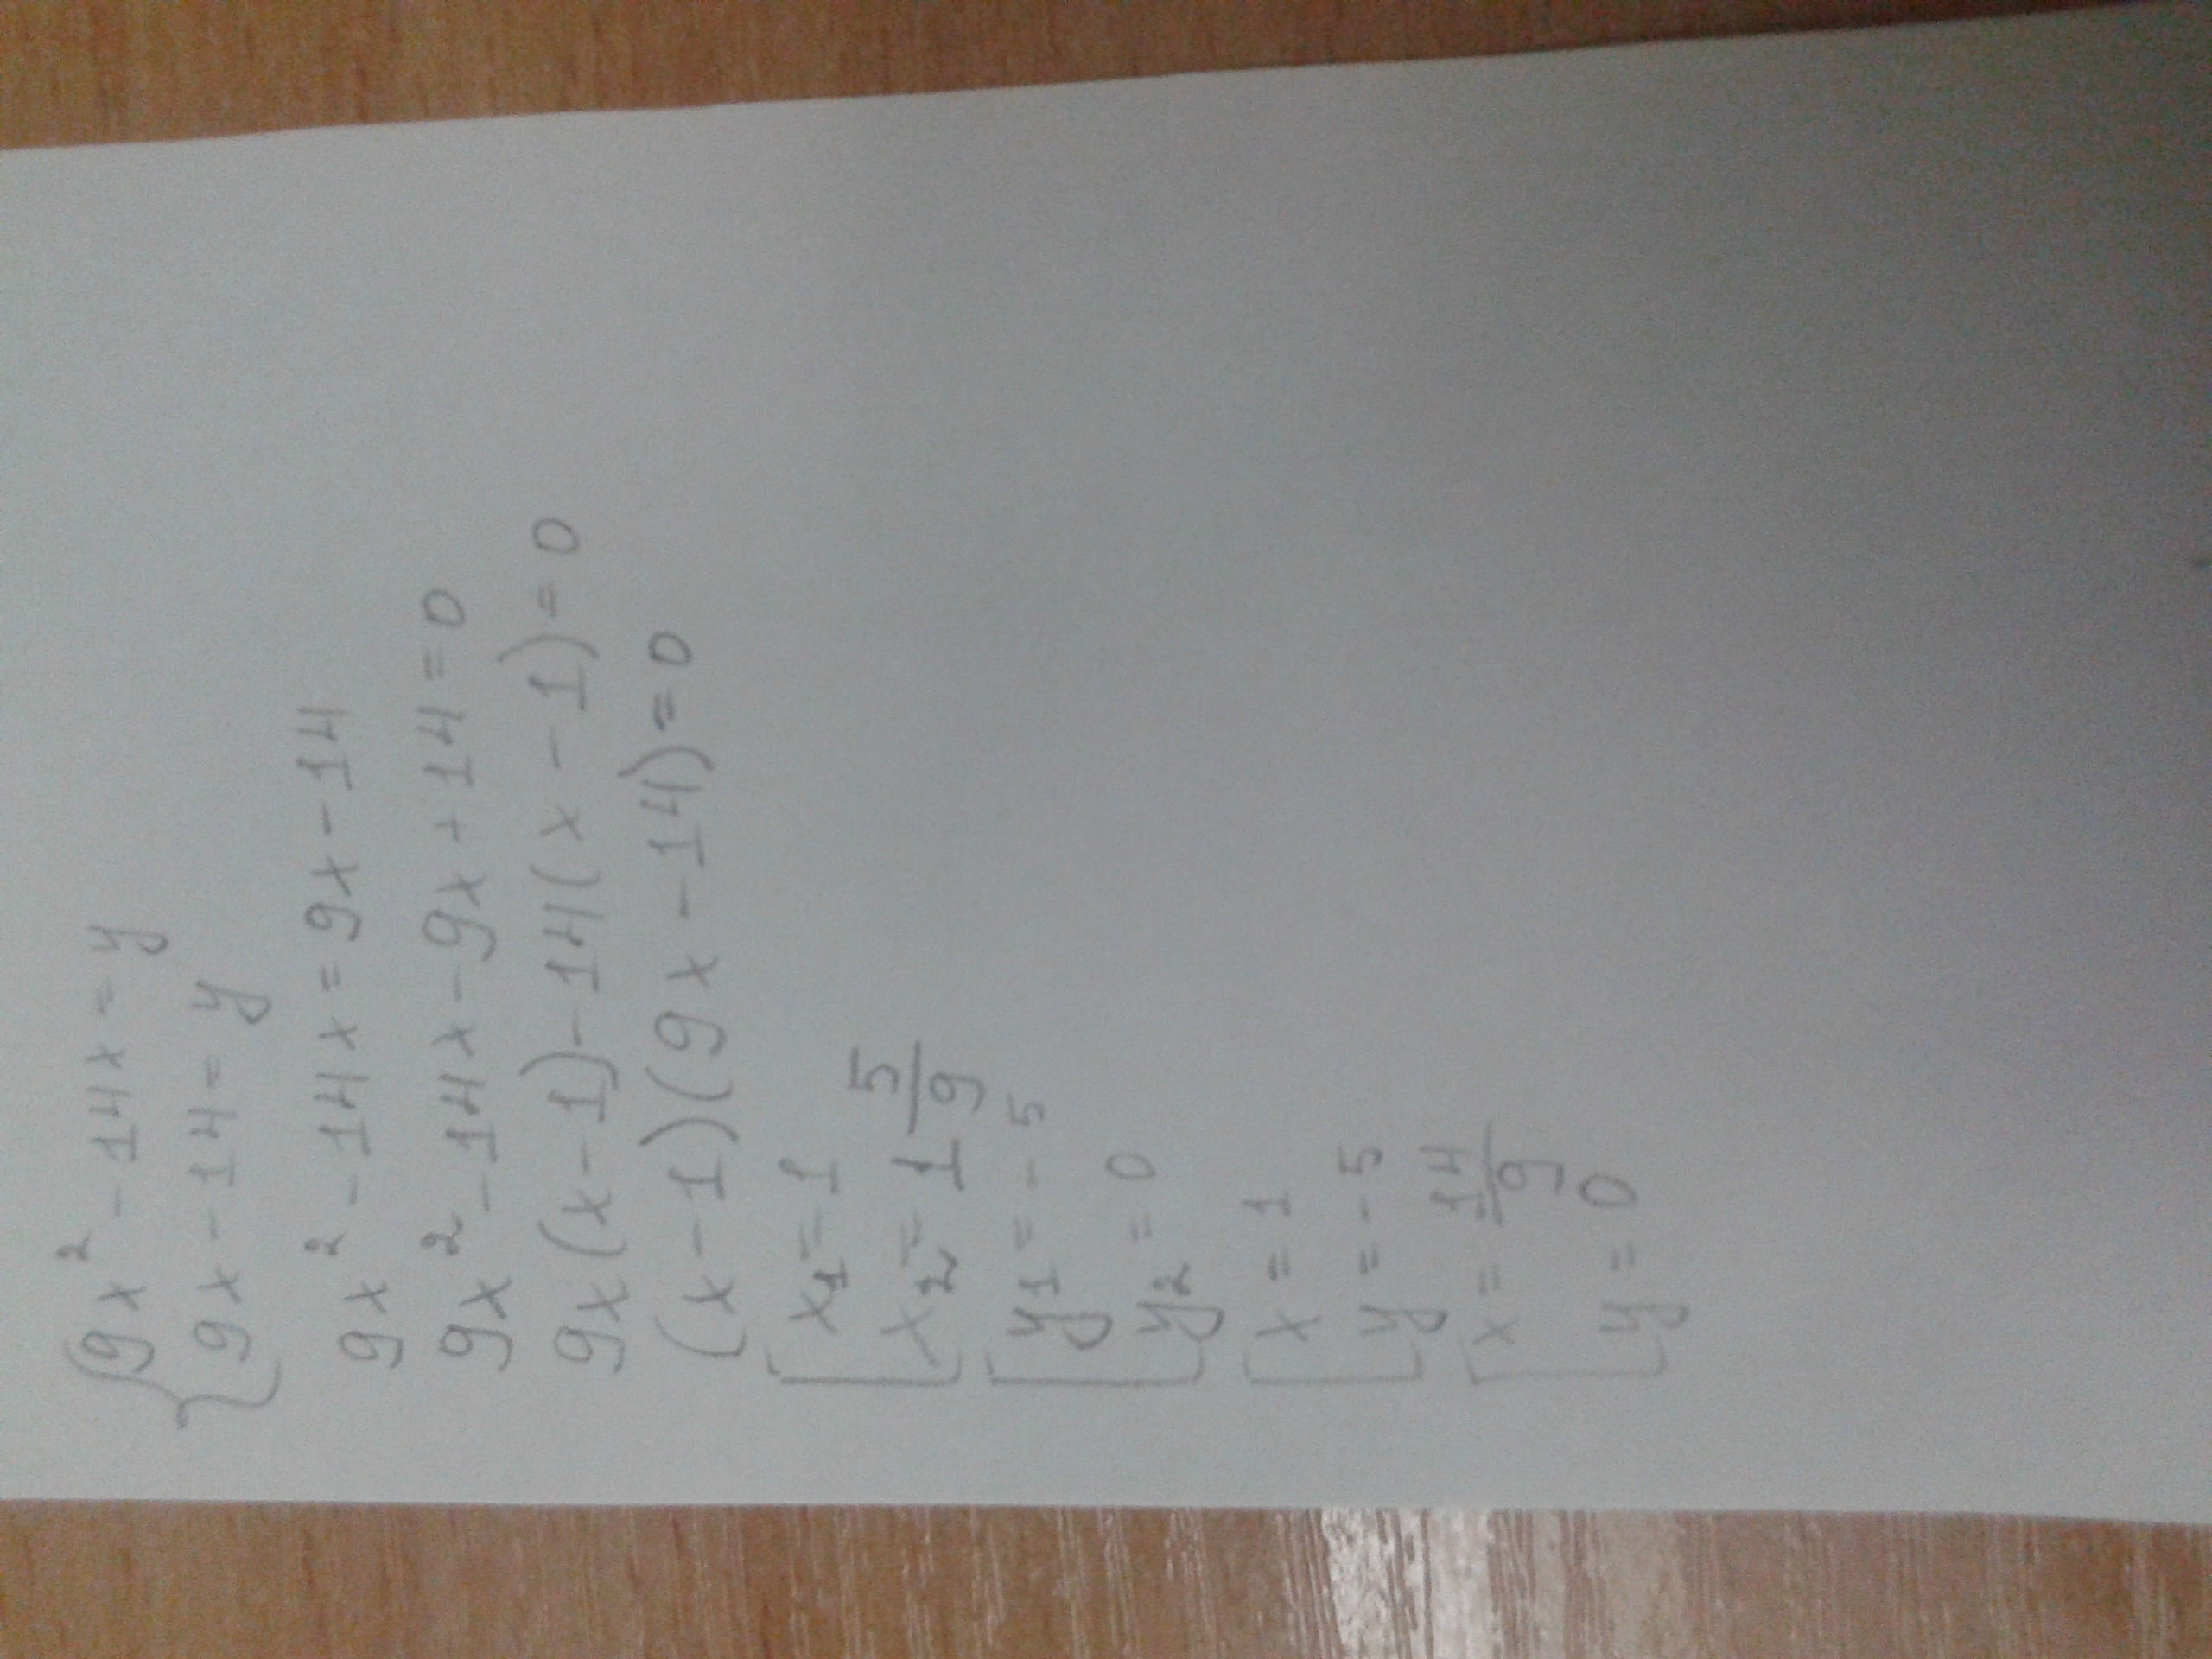 {9x² - 14x = y
9x - 14 = y
9x² - 14x = 9x - 14
9x² - 14x - 9x + 14 = 0
9x(x - 1) - 14(x - 1) = 0
(x - 1)(9x - 14) = 0
[x₁ = 1
x₂ = 1 5/9
[y₁ = -5
y₂ = 0
[x = 1
y = -5
[x = 14/9
y = 0